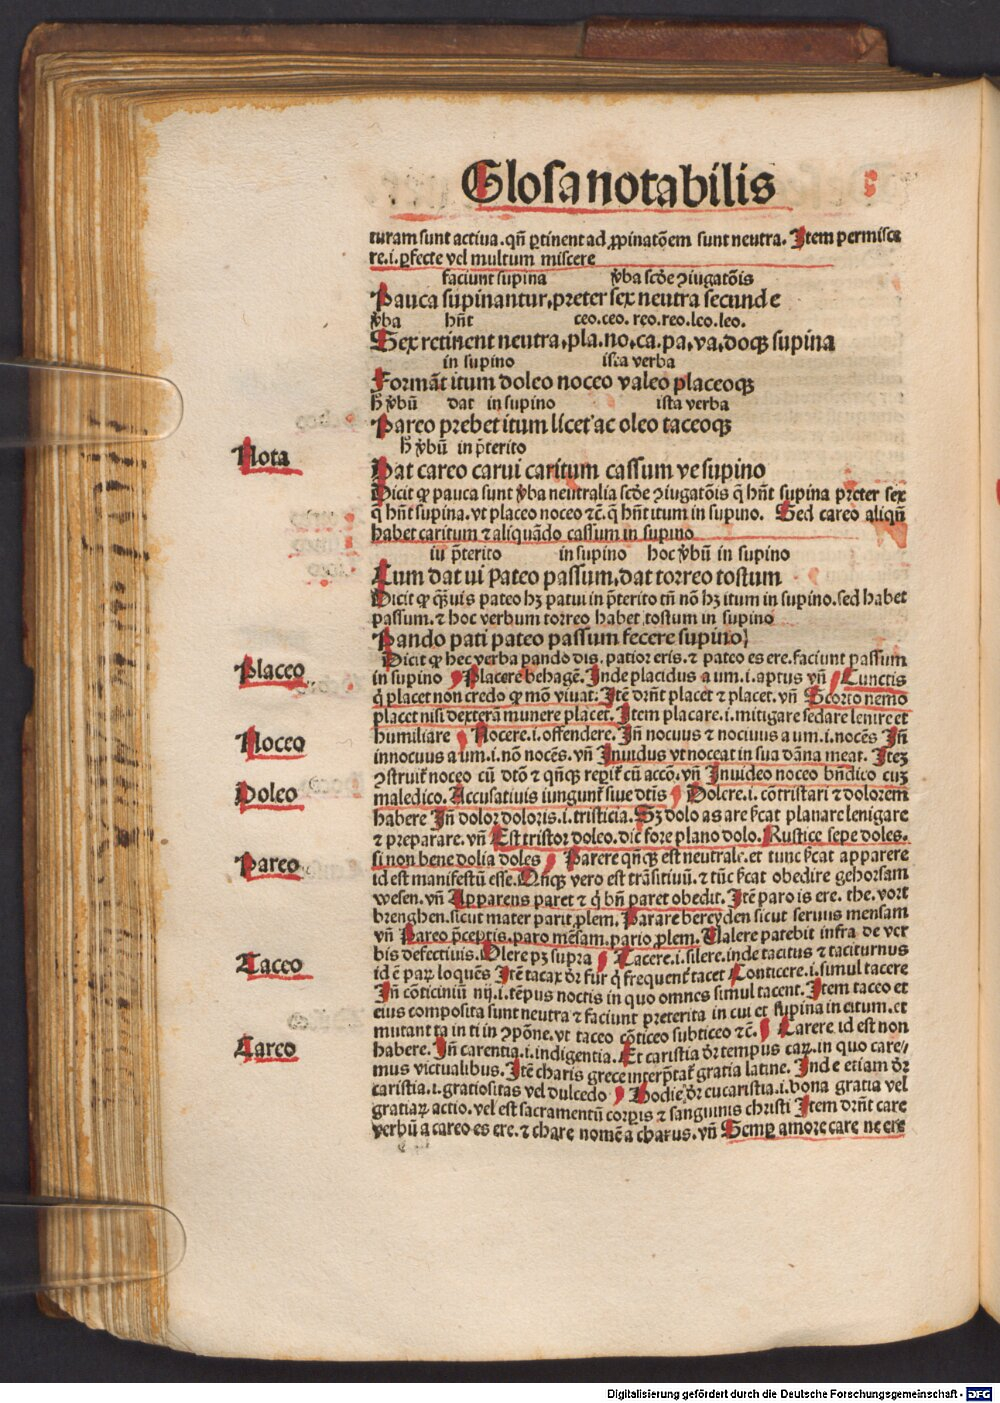 Glosa notabilis
turam sunt actiua. qñ ꝑtinent ad ꝓpinatõem sunt neutra. Item permisce
re .i. ꝑfecte vel multum miscere
faciunt supina v̄ba scd̄e ꝯiugatõis
Pauca supinantur, preter sex neutra secunde
v̄ba hñt ceo. ceo. reo. reo. leo. leo.
Sex retinent neutra, pla. no, ca. pa, va, doqꝫ supina
in supino ista verba
Formãt itum doleo noceo valeo placeoqꝫ
h̄ v̄bũ dat in supino ista verba
Pareo prebet itum licet ac oleo taceoqꝫ
h̄ v̄bũ in p̄terito
Nota
Dat careo carui caritum cassum ve supino
Dicit ꝙ pauca sunt v̄ba neutralia scd̄e ꝯiugatõis q̄ hñt supina preter sex
q̄ hñt supina. vt placeo noceo ⁊c̄. q̄ hñt itum in supino. Sed careo aliqñ
habet caritum ⁊ aliquãdo cassum in supino
in p̄terito in supino hoc v̄bũ in supino
Cum dat ui pateo passum, dat torreo tostum
Dicit ꝙ q̄ꝫuis pateo hꝫ patui in p̄terito tñ nõ hꝫ itum in supino. sed habet
passum. ⁊ hoc verbum torreo habet tostum in supino
Pando pati pateo passum fecere supino
Dicit ꝙ hec verba pando dis. patior eris. ⁊ pateo es ere. faciunt passum
Placeo
in supino Placere behagẽ. Inde placidus a um .i. aptus vñ Cunctis
q̇ placet non credo ꝙ mõ viuat. Itẽ drñt placet ⁊ placet. vñ Scorto nemo
placet nisi dexterã munere placet. Item placare .i. mitigare sedare lenire et
Noceo
humiliare Nocere .i. offendere. Iñ nocuus ⁊ nociuus a um .i. nocẽs Iñ
innocuus a um .i. nõ nocẽs. vñ Inuidus vt noceat in sua dãna meat. Iteꝫ
ꝯstruit noceo cũ dtõ ⁊ qñqꝫ repit cũ accõ. vñ Inuideo noceo bñdico cuꝫ
Doleo
maledico. Accusatiuis iungunt siue dtĩs Dolere .i. cõtristari ⁊ dolorem
habere Iñ dolor doloris .i. tristicia. Sꝫ dolo as are ficat planare lenigare
⁊ preparare. vñ Est tristor doleo. dic fore plano dolo. Rustice sepe doles.
Pareo
si non bene dolia doles Parere qñqꝫ est neutrale. et tunc ficat apparere
id est manifestũ esse. Qñqꝫ vero est trãsitiuũ. ⁊ tũc ficat obedire gehorsam
wesen. vñ Apparens paret ⁊ q̇ bñ paret obedit. Itẽ paro is ere. the. vort
brenghen. sicut mater parit ꝓlem. Parare bereyden sicut seruus mensam
vñ Pareo p̄ceptis. paro mẽsam. pario ꝓlem. Valere patebit infra de ver
bis defectiuis. Olere pꝫ supra Tacere .i. silere. inde tacitus ⁊ taciturnus
Taceo
id ẽ paꝝ loquẽs Itẽ tacax dr̄ fur q̇ frequent̃ tacet Conticere .i. simul tacere
Iñ cõticiniũ nij .i. tẽpus noctis in quo omnes simul tacent. Item taceo et
eius composita sunt neutra ⁊ faciunt preterita in cui et supina in citum. et
mutant ta in ti in ꝯpõne. vt taceo cõticeo subticeo ⁊c̄. Carere id est non
Careo
habere. Iñ carentia .i. indigentia. Et caristia dr̄ tempus caꝝ. in quo care/
mus victualibus. Itẽ charis grece interp̄tat gratia latine. Inde etiam dr̄
caristia .i. gratiositas vel dulcedo Hodie dr̄ eucaristia .i. bona gratia vel
gratiaꝝ actio. vel est sacramentũ corꝑis ⁊ sanguinis christi Item drñt care
verbũ a careo es ere. ⁊ chare nomẽ a charus. vñ Semꝑ amore care ne ere
Digitalisierung gefördert durch die Deutsche Forschungsgemeinschaft - DFG